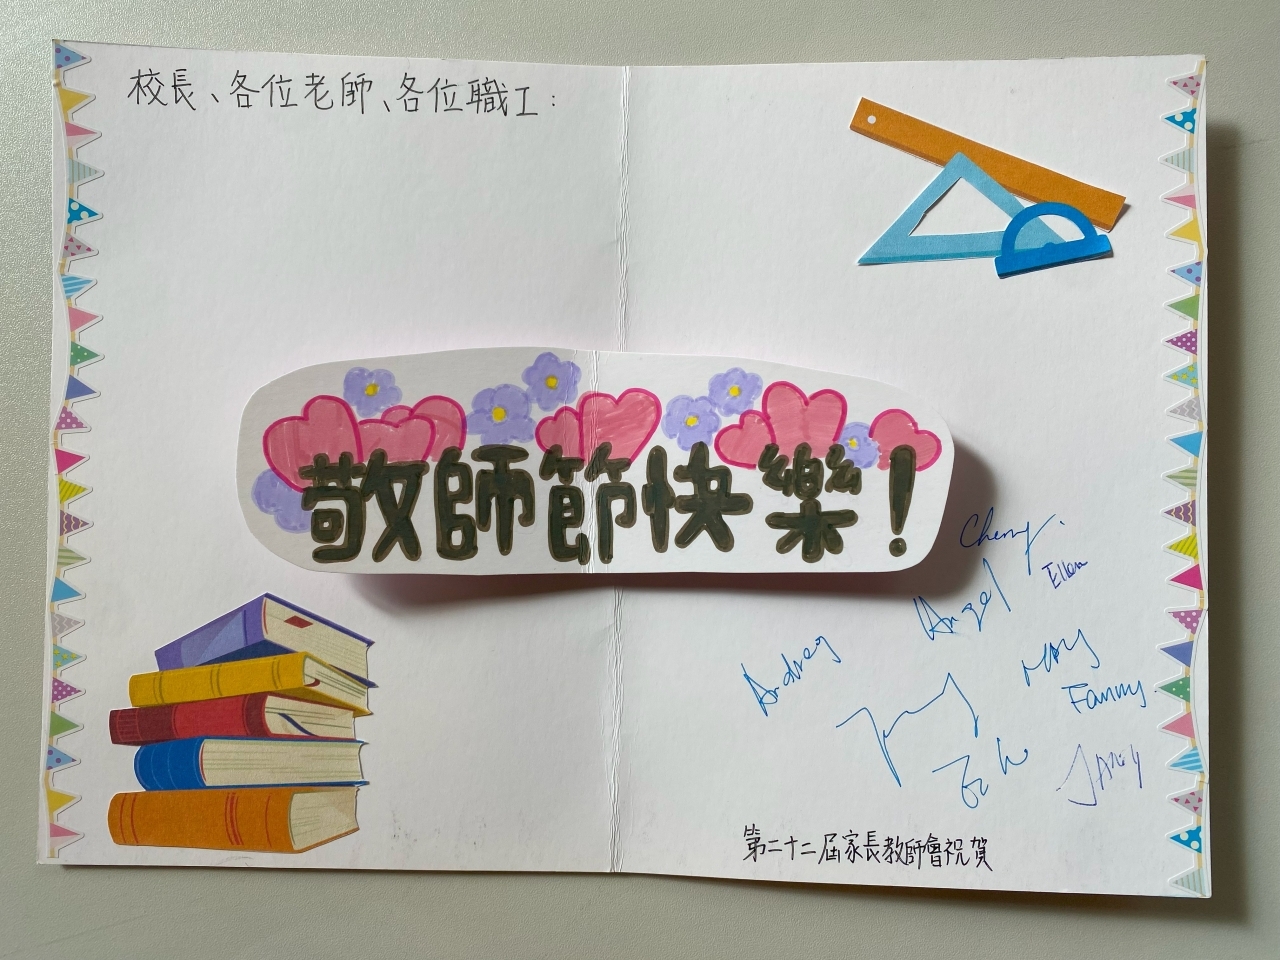 校長、各位老師、各位職工：
敬師節快樂！
Cherry.
Ellen
Angel
Audrey
Mary
Fanny
第二十二屆家長教師會祝賀